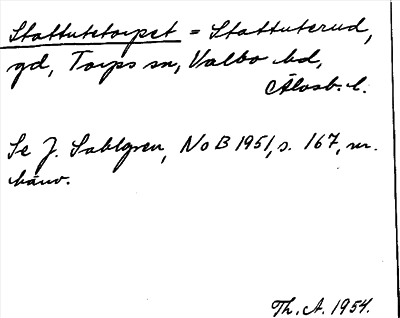 Stattutetorpet = Stattuterud,
gd, Torps sn, Valbo hd,
Älvsb. l.
Se J. Sahlgren, NoB 1951, s. 167, m.
hänv.
Th. A. 1954.